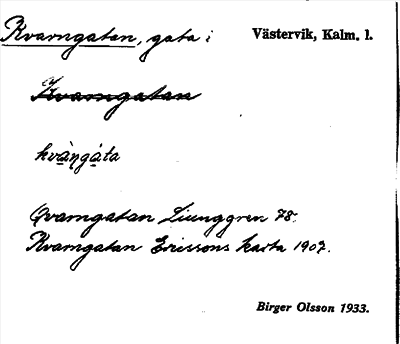 Kvarngatan, gata i Västervik, Kalm. l.
Kvarngatan
kvàŋgáta
Qvarngatan Ljunggren 78.
Kvarngatan Erissons karta 1907.
Birger Olsson 1933.